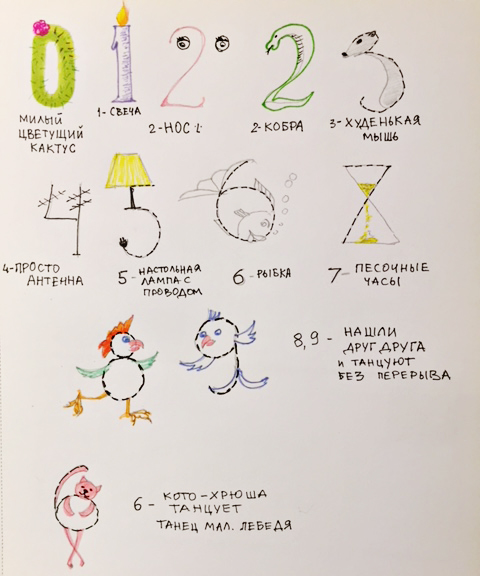 0 1 2 2 3
МИЛЫЙ
ЦВЕТУЩИЙ
КАКТУС
1-СВЕЧА
2-НОС
2-КОБРА
3-ХУДЕНЬКАЯ
МЫШЬ
4 5 6 7
4-ПРОСТО
АНТЕННА
5 - НАСТОЛЬНАЯ
ЛАМПА С
ПРОВОДОМ
6 - РЫБКА
7 - ПЕСОЧНЫЕ
ЧАСЫ
8 9
8,9 - НАШЛИ
ДРУГ ДРУГА
И ТАНЦУЮТ
БЕЗ ПЕРЕРЫВА
6
6 - КОТО-ХРЮША
ТАНЦУЕТ
ТАНЕЦ МАЛ. ЛЕБЕДЯ